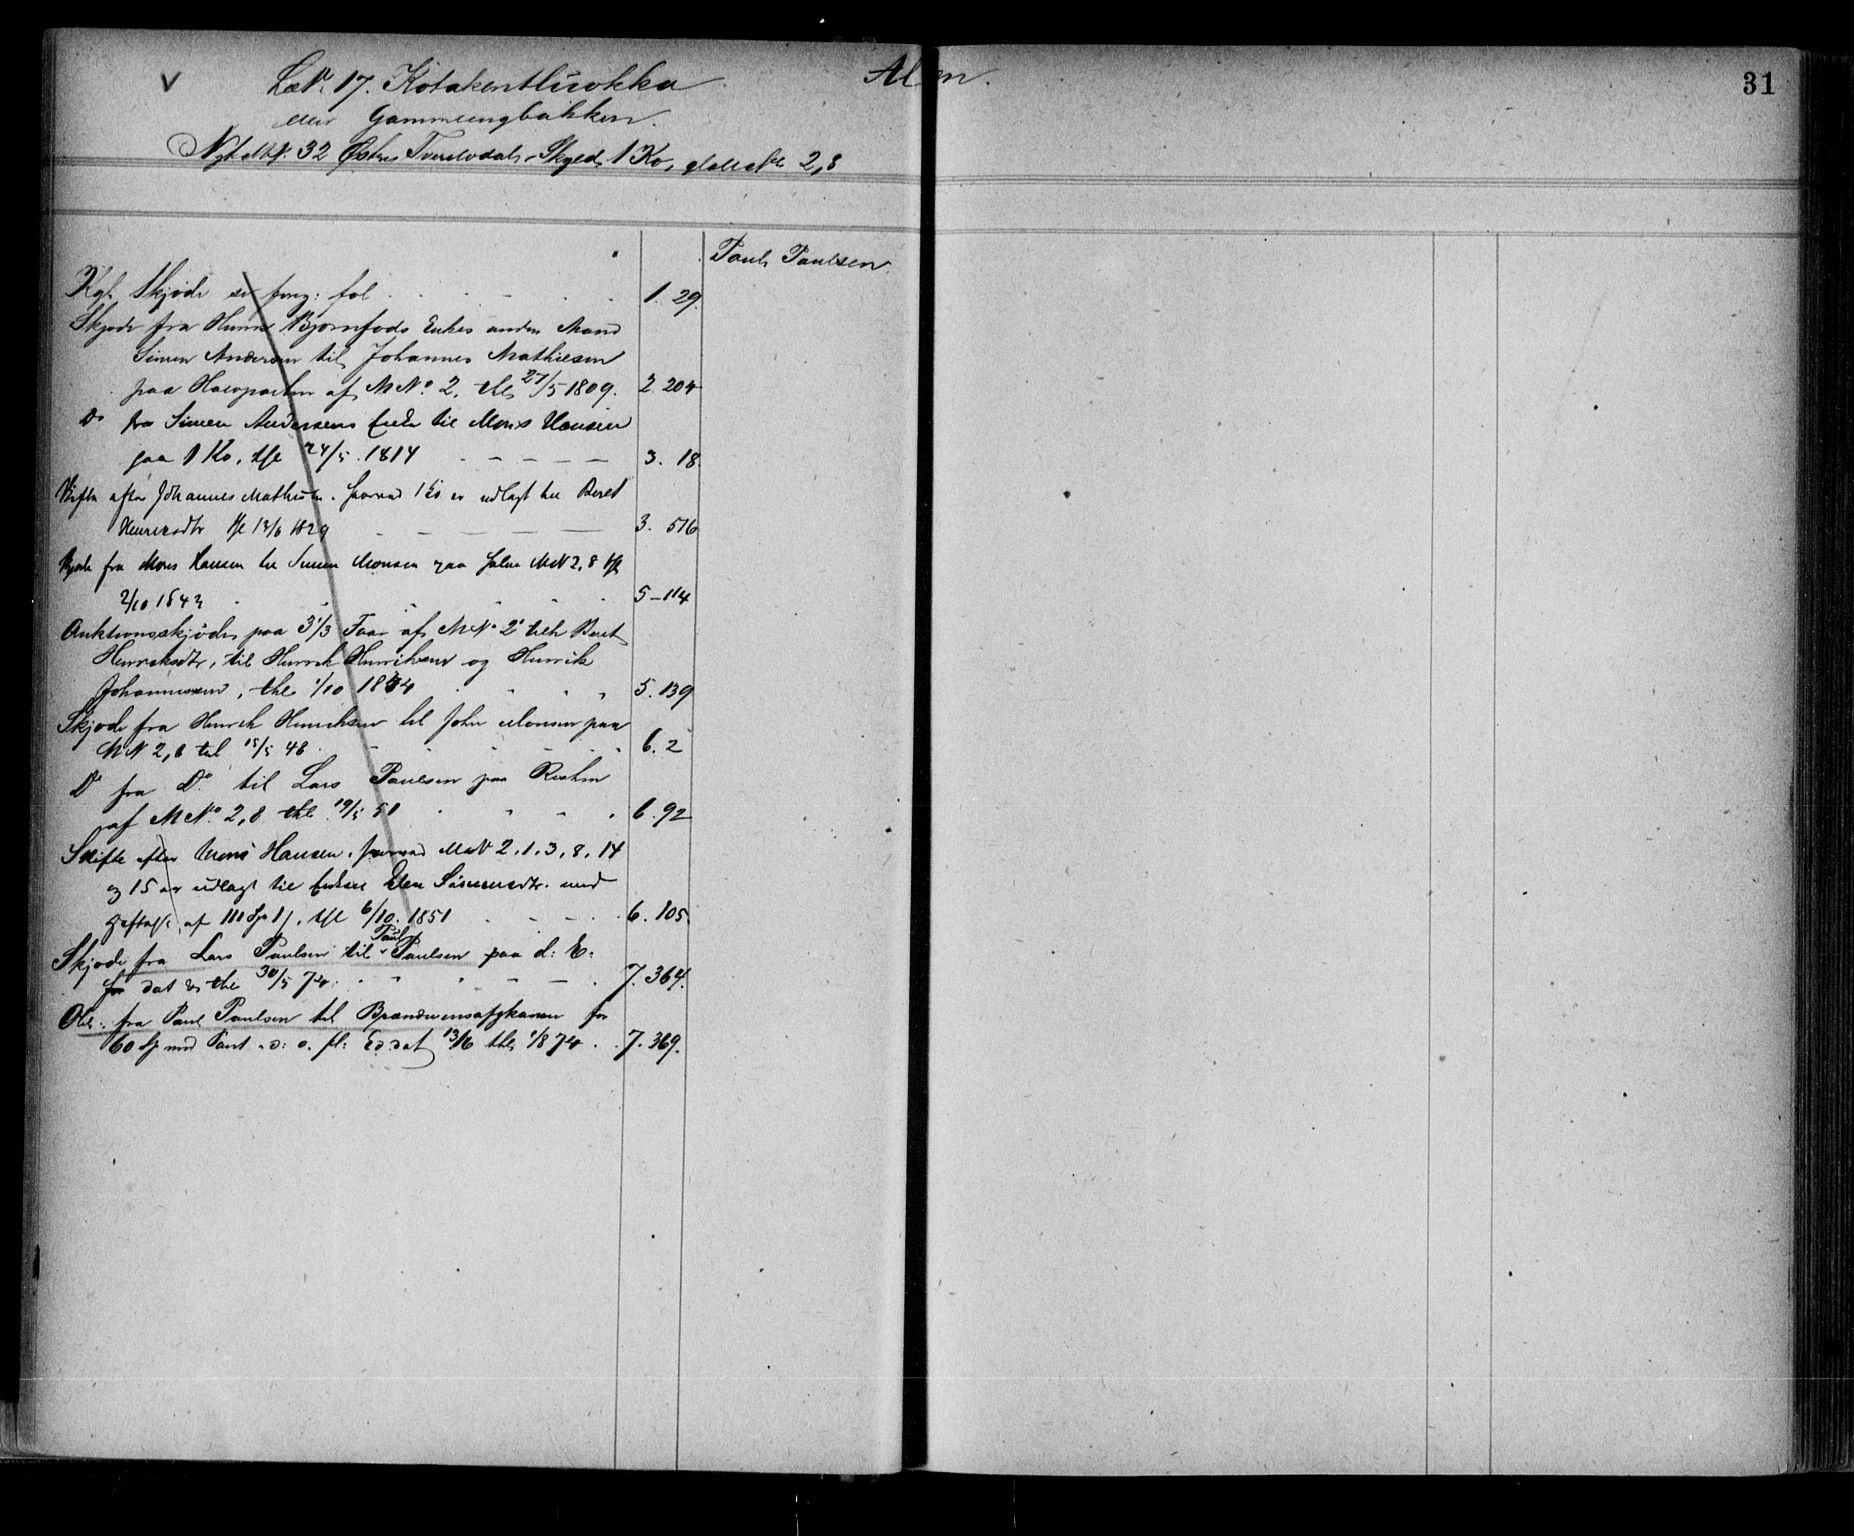 V LNo. 17. Kotakentlisokka Alen. 31
eller Gammeengbakken.
Nyt MNo. 32 Østre Tverelvdal. Skyld, 1 Ko, gl. MNo 2,8
Paul Paulsen
Kgl. Skjøde se foreg: fol. 1. 29.
Skjøde fra Henrik Bjørnfods Enkes anden Mand
Simen Andersen til Johannes Mathiesen
paa Halvparten af MNo. 2. thl 27/5 1809. 2. 204
Do fra Simen Andersens Enke til Mons Hansen
paa 1 Ko, thl 24/5. 1814 3. 18.
Skifte efter Johannes Mathiesen. hvorved 1 Ko er udlagt til Beret
Henriksdtr thl 13/6 1829 3. 516
Skjøde fra Mons Hansen til Simen Monsen paa halve MN 2,8 thl
2/10 1843 5-114
Auktionsskjøde paa 3 1/3 Faar af MNo 2 tilh Beret
Henriksdtr, til Henrik Henriksen og Henrik
Johannesen, thl 1/10 1844 5. 139
Skjøde fra Henrik Henriksen til John Monsen paa
MN 2,8 thl 15/5 48 6. 2
Do fra Do til Lars Paulsen paa Resten
af MNo. 2,8 thl. 19/5 51 6. 92
Skifte efter Mons Hansen, hvorved MN 2.1.3,8.14
og 15 er udlagt til Enken Elen Simensdtr. med
Heftelse af 111 Sp 1 f, thl 6/10. 1851 6. 105.
Skjøde fra Lars Paulsen til Paul Paulsen paa d: E:
for dat & thl 30/5 74. 7. 364.
Obl: fra Paul Paulsen til Brændevinsafgkassen for
60 Sp mod Pant d: o. fl: Ed: dat 13/6 thl 1/8 74 7. 369.